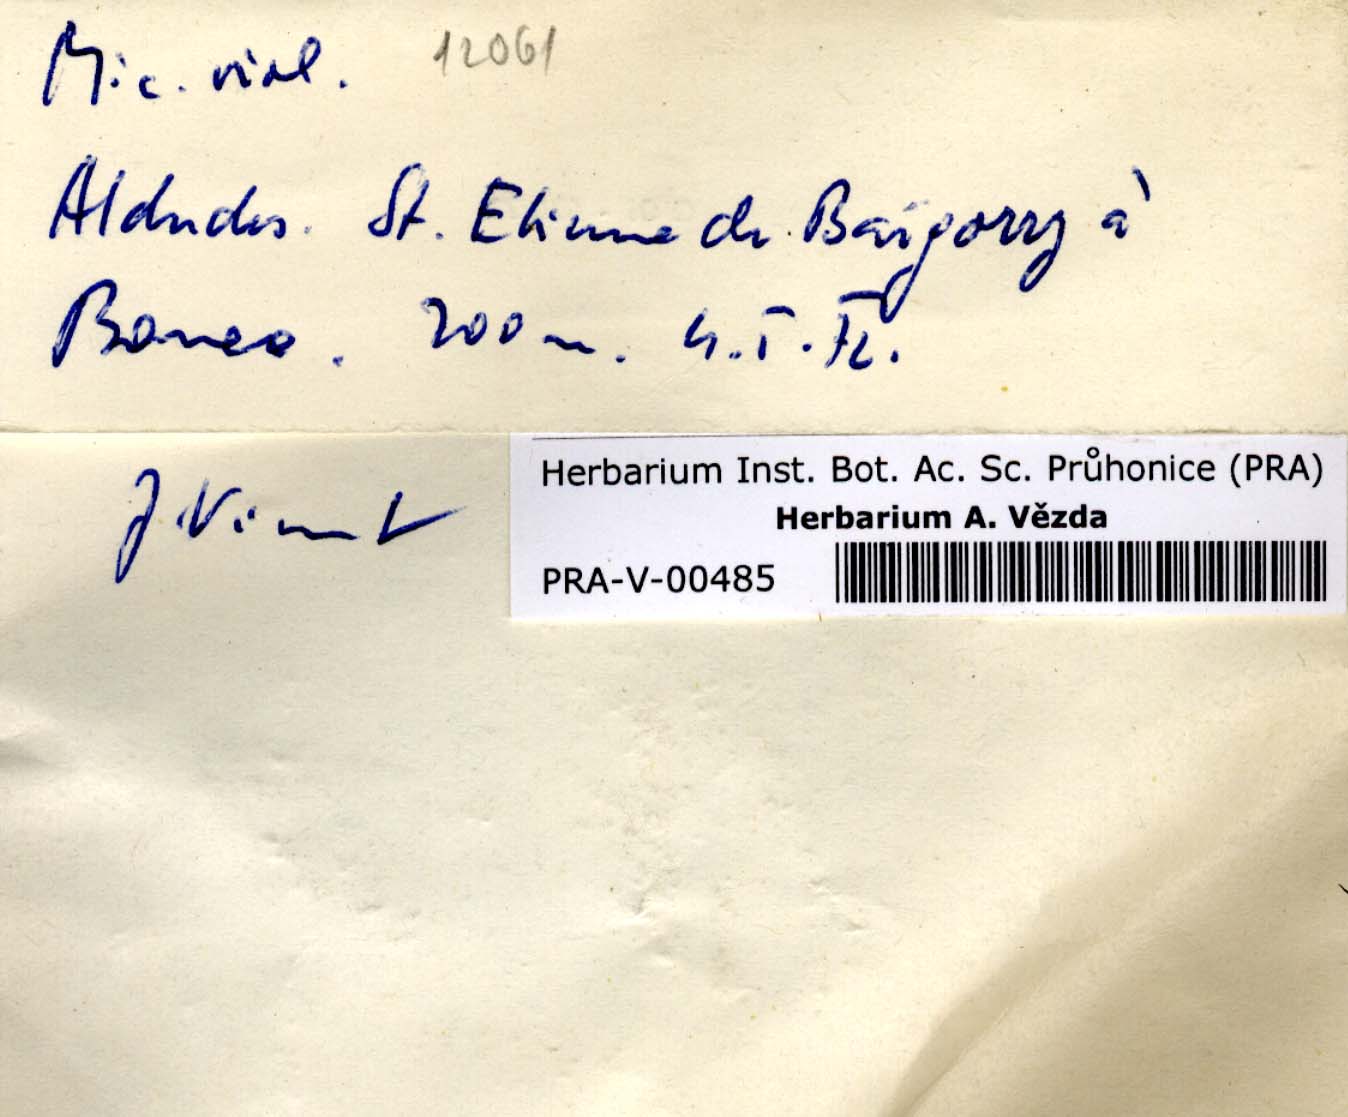 Mic. viol. 12061
Aldudes. St. Etienne de Baïgorry à
Banca. 200 m. 4.I.72.
J. Vivant
Herbarium Inst. Bot. Ac. Sc. Průhonice (PRA)
Herbarium A. Vězda
PRA-V-00485